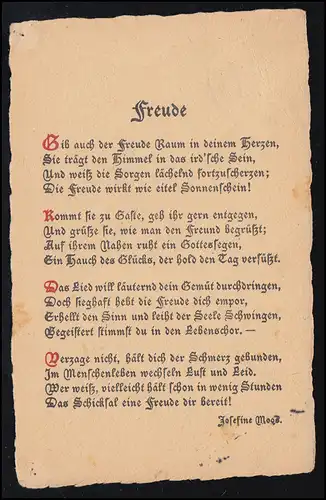 Freude
Gib auch der Freude Raum in deinem Herzen,
Sie trägt den Himmel in das ird'sche Sein,
Und weiß die Sorgen lächelnd fortzuscherzen;
Die Freude wirkt wie eitel Sonnenschein!
Kommt sie zu Gaste, geh ihr gern entgegen,
Und grüße sie, wie man den Freund begrüßt;
Auf ihrem Nahen ruht ein Gottessegen,
Ein Hauch des Glücks, der hold den Tag versüßt.
Das Lied will läuternd dein Gemüt durchdringen,
Doch sieghaft hebt die Freude dich empor,
Erhellt den Sinn und leiht der Seele Schwingen,
Begeistert stimmst du in den Lebenschor. —
Verzage nicht, hält dich der Schmerz gebunden,
Im Menschenleben wechseln Lust und Leid.
Wer weiß, vielleicht hält schon in wenig Stunden
Das Schicksal eine Freude dir bereit!
Josefine Moos.